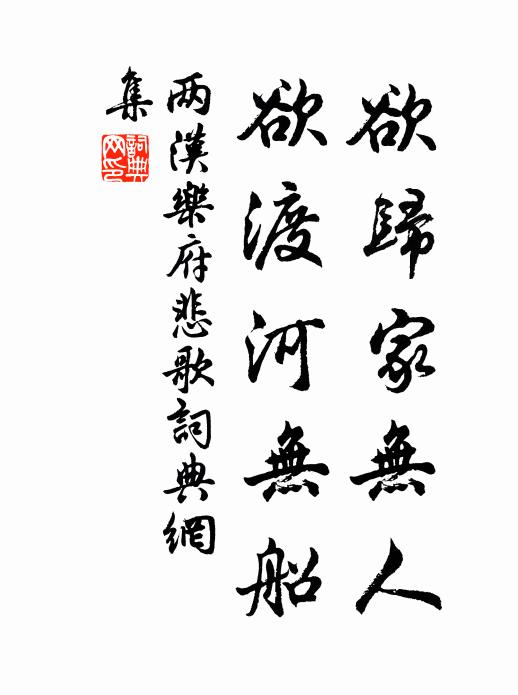 欲歸家無人
欲渡河無船
两漢樂府悲歌詞典網
集
詞典网印